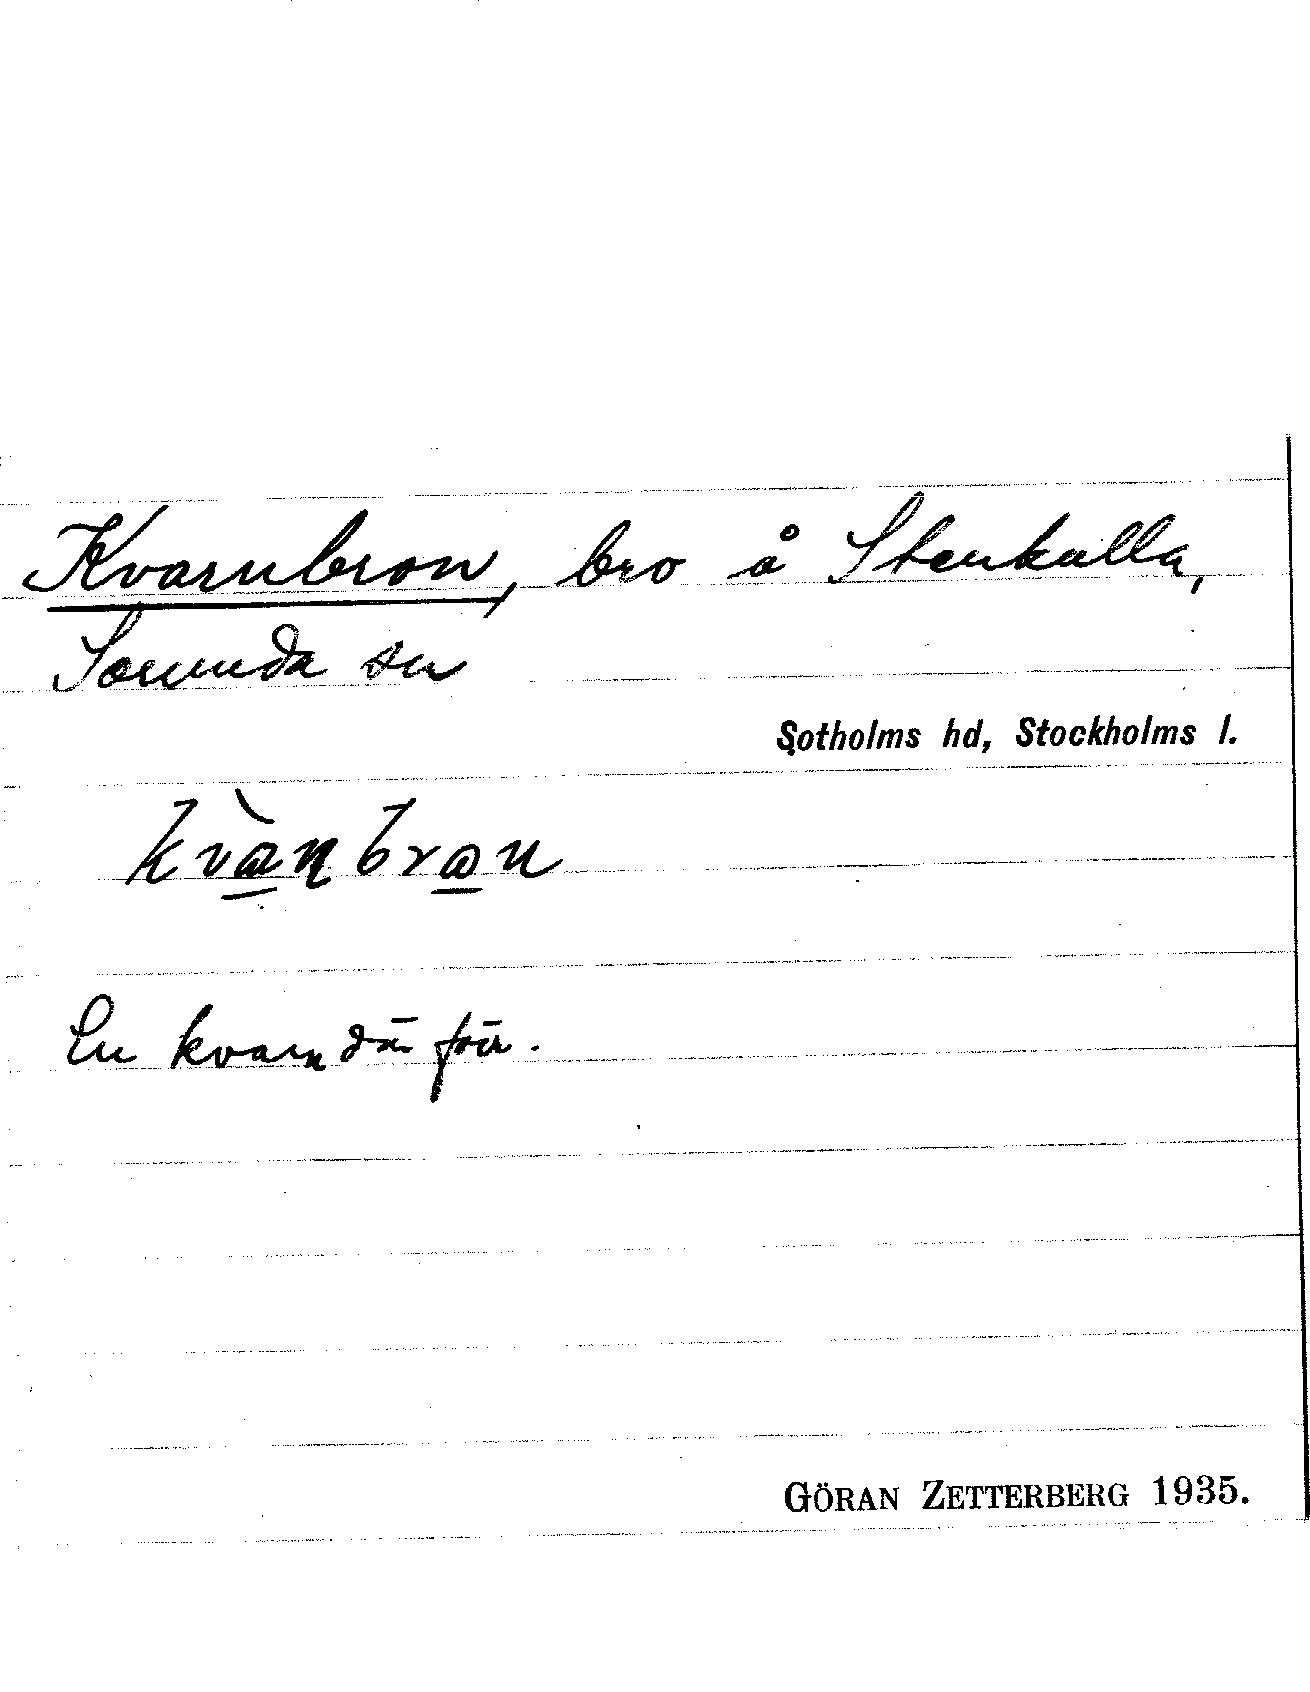 Kvarnbron, bro å Stenkulla,
Sorunda sn
Sotholms hd, Stockholms l.
kvànbron
En kvarn där förr.
GÖRAN ZETTERBERG 1935.